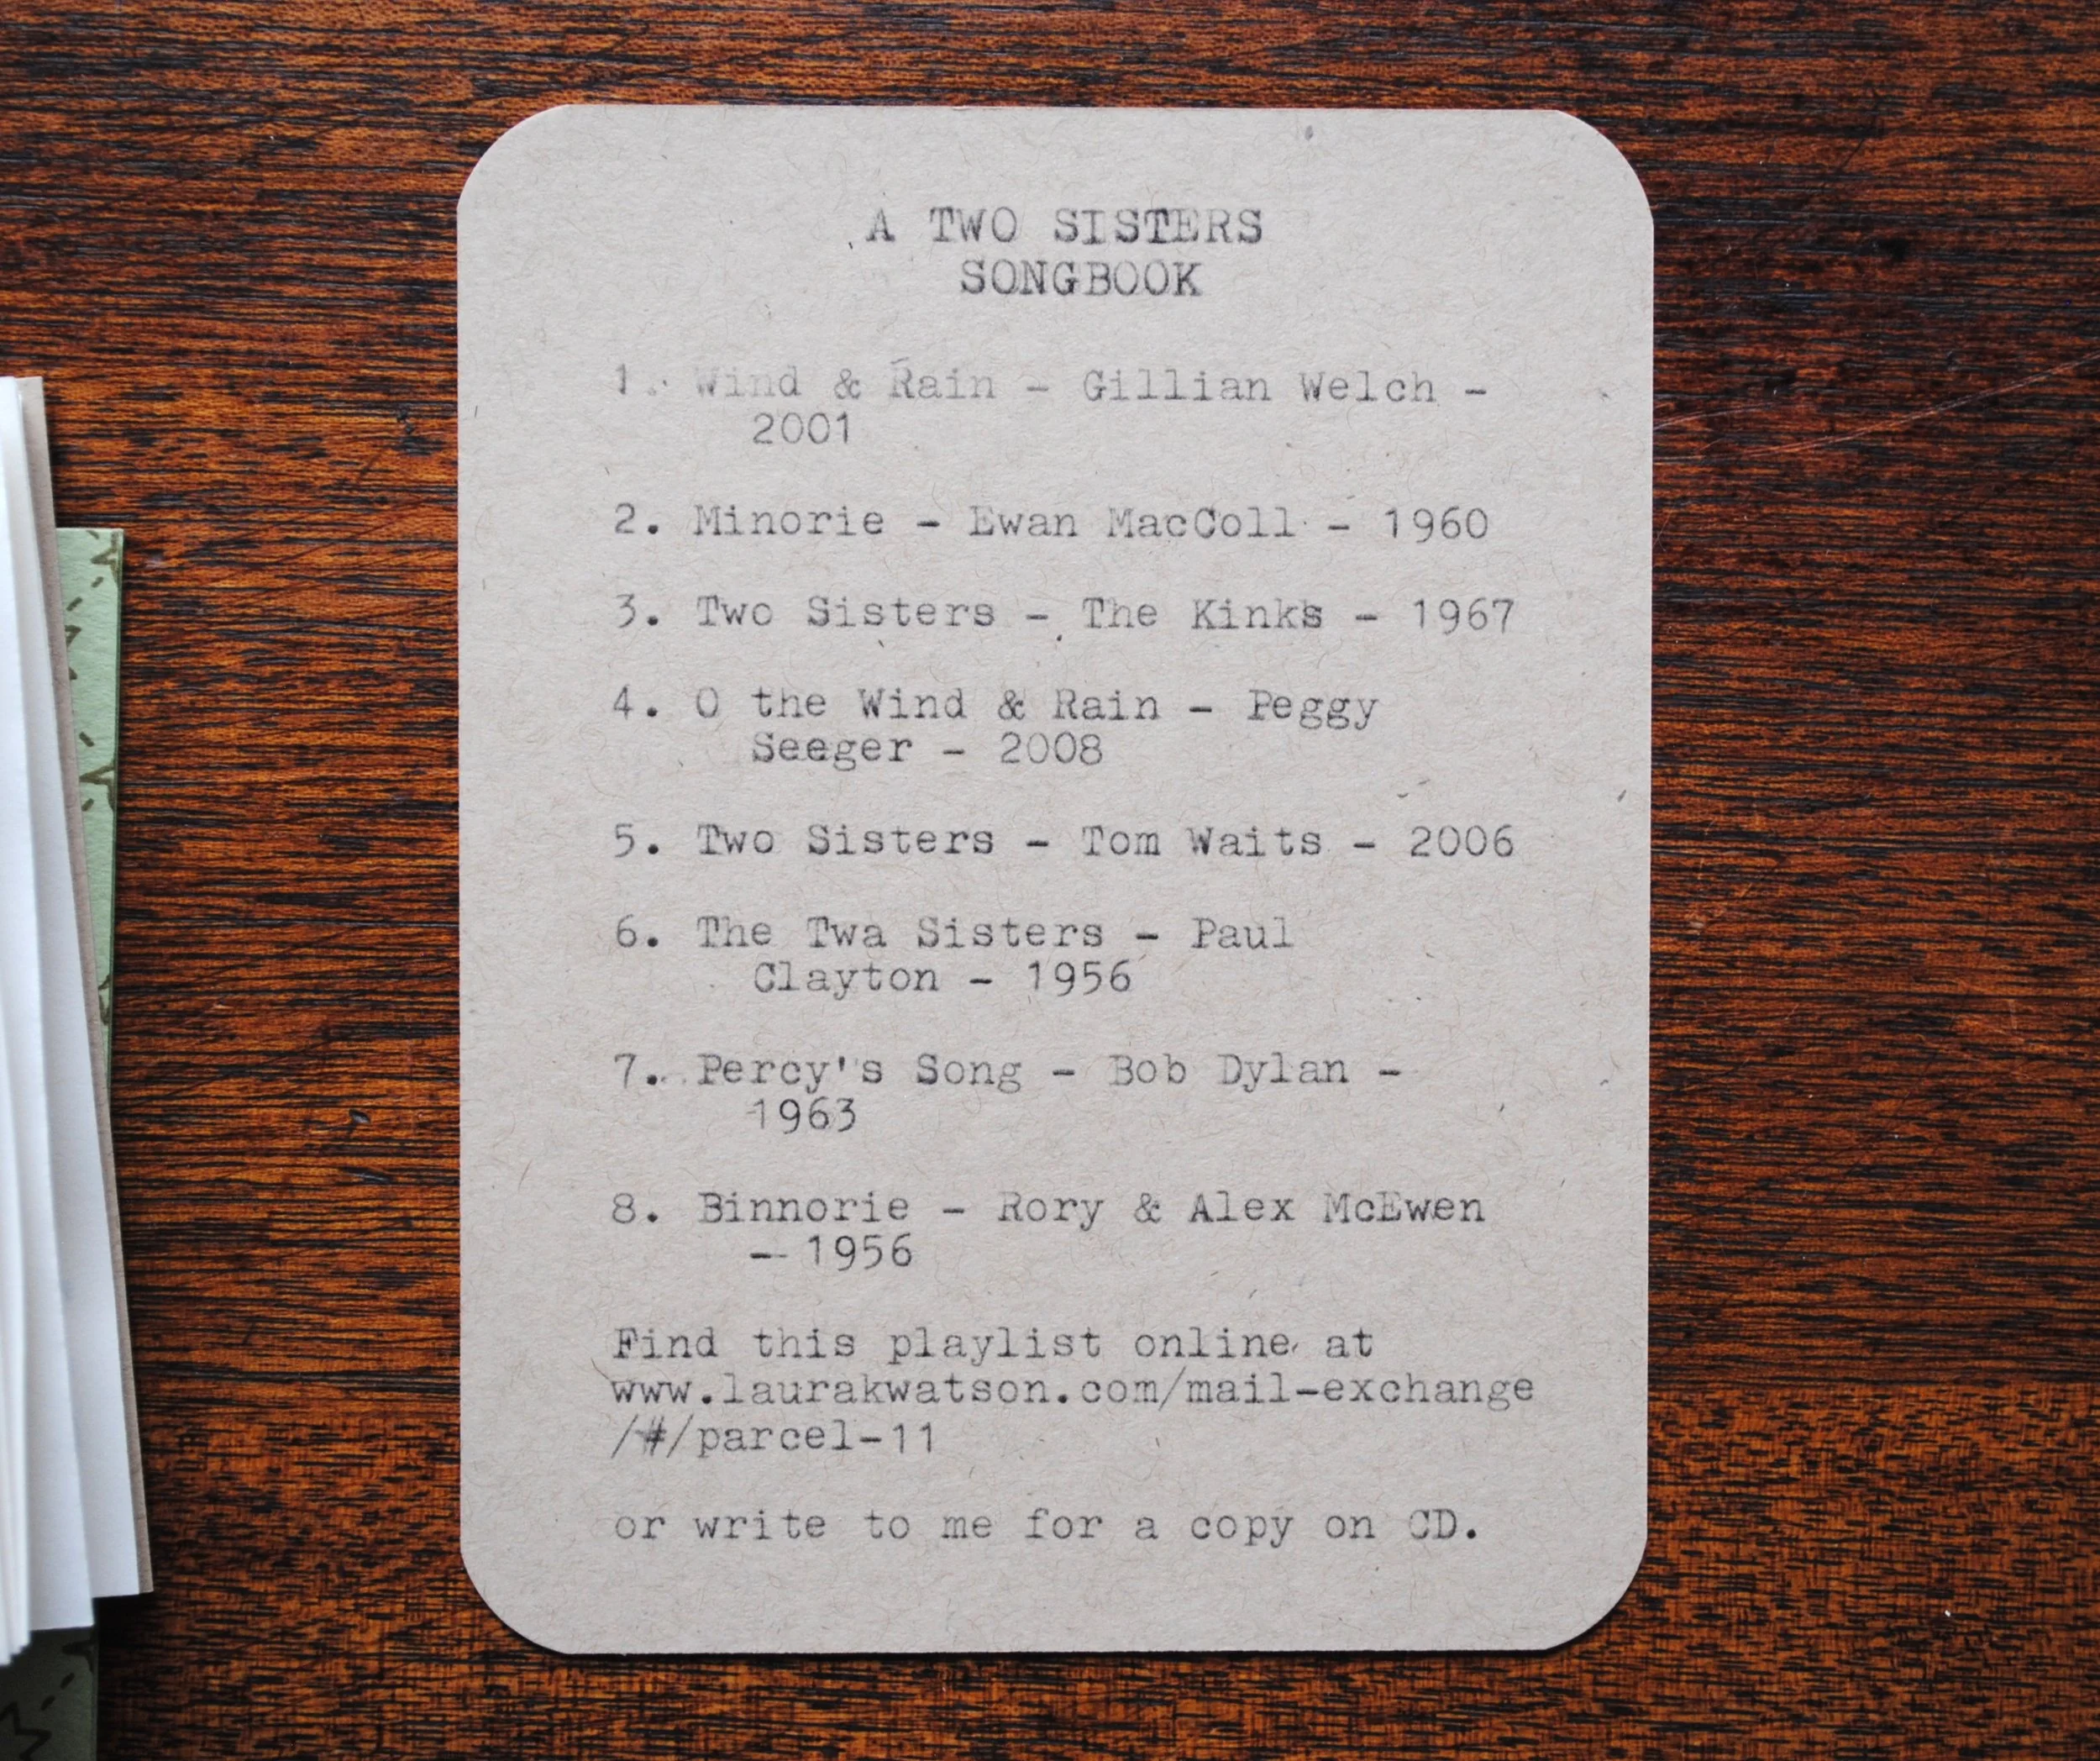 A TWO SISTERS
SONGBOOK
1. Wind & Rain - Gillian Welch -
2001
2. Minorie - Ewan MacColl - 1960
3. Two Sisters - The Kinks - 1967
4. O the Wind & Rain - Peggy
Seeger - 2008
5. Two Sisters - Tom Waits - 2006
6. The Twa Sisters - Paul
Clayton - 1956
7. Percy's Song - Bob Dylan -
1963
8. Binnorie - Rory & Alex McEwen
- 1956
Find this playlist online at
www.laurakwatson.com/mail-exchange
/#/parcel-11
or write to me for a copy on CD.